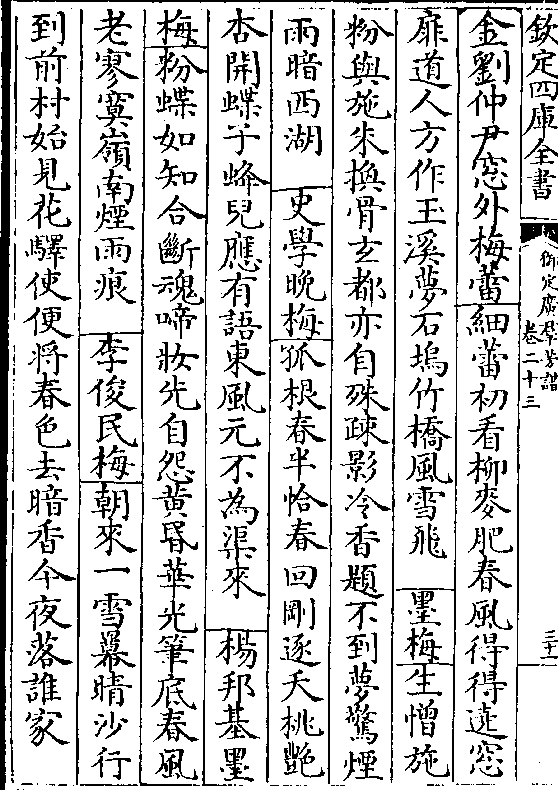 欽定四庫全書
御定廣羣芳譜
卷二十三
三十一
金劉仲尹窓外梅蕾細蕾初看柳麥肥春風得得遶窓
扉道人方作玉溪夢石塢竹橋風雪飛 墨梅生憎施
粉與施朱換骨玄都亦自殊疎影冷香題不到夢驚煙
雨暗西湖 史學晚梅孤根春半恰春回剛逐夭桃艷
杏開蝶子蜂兒應有語東風元不為渠來 楊邦基墨
梅粉蝶如知合斷魂啼妝先自怨黃昏華光筆底春風
老寥寞嶺南煙雨痕 李俊民梅朝來一雪羃晴沙行
到前村始見花驛使便將春色去暗香今夜落誰家